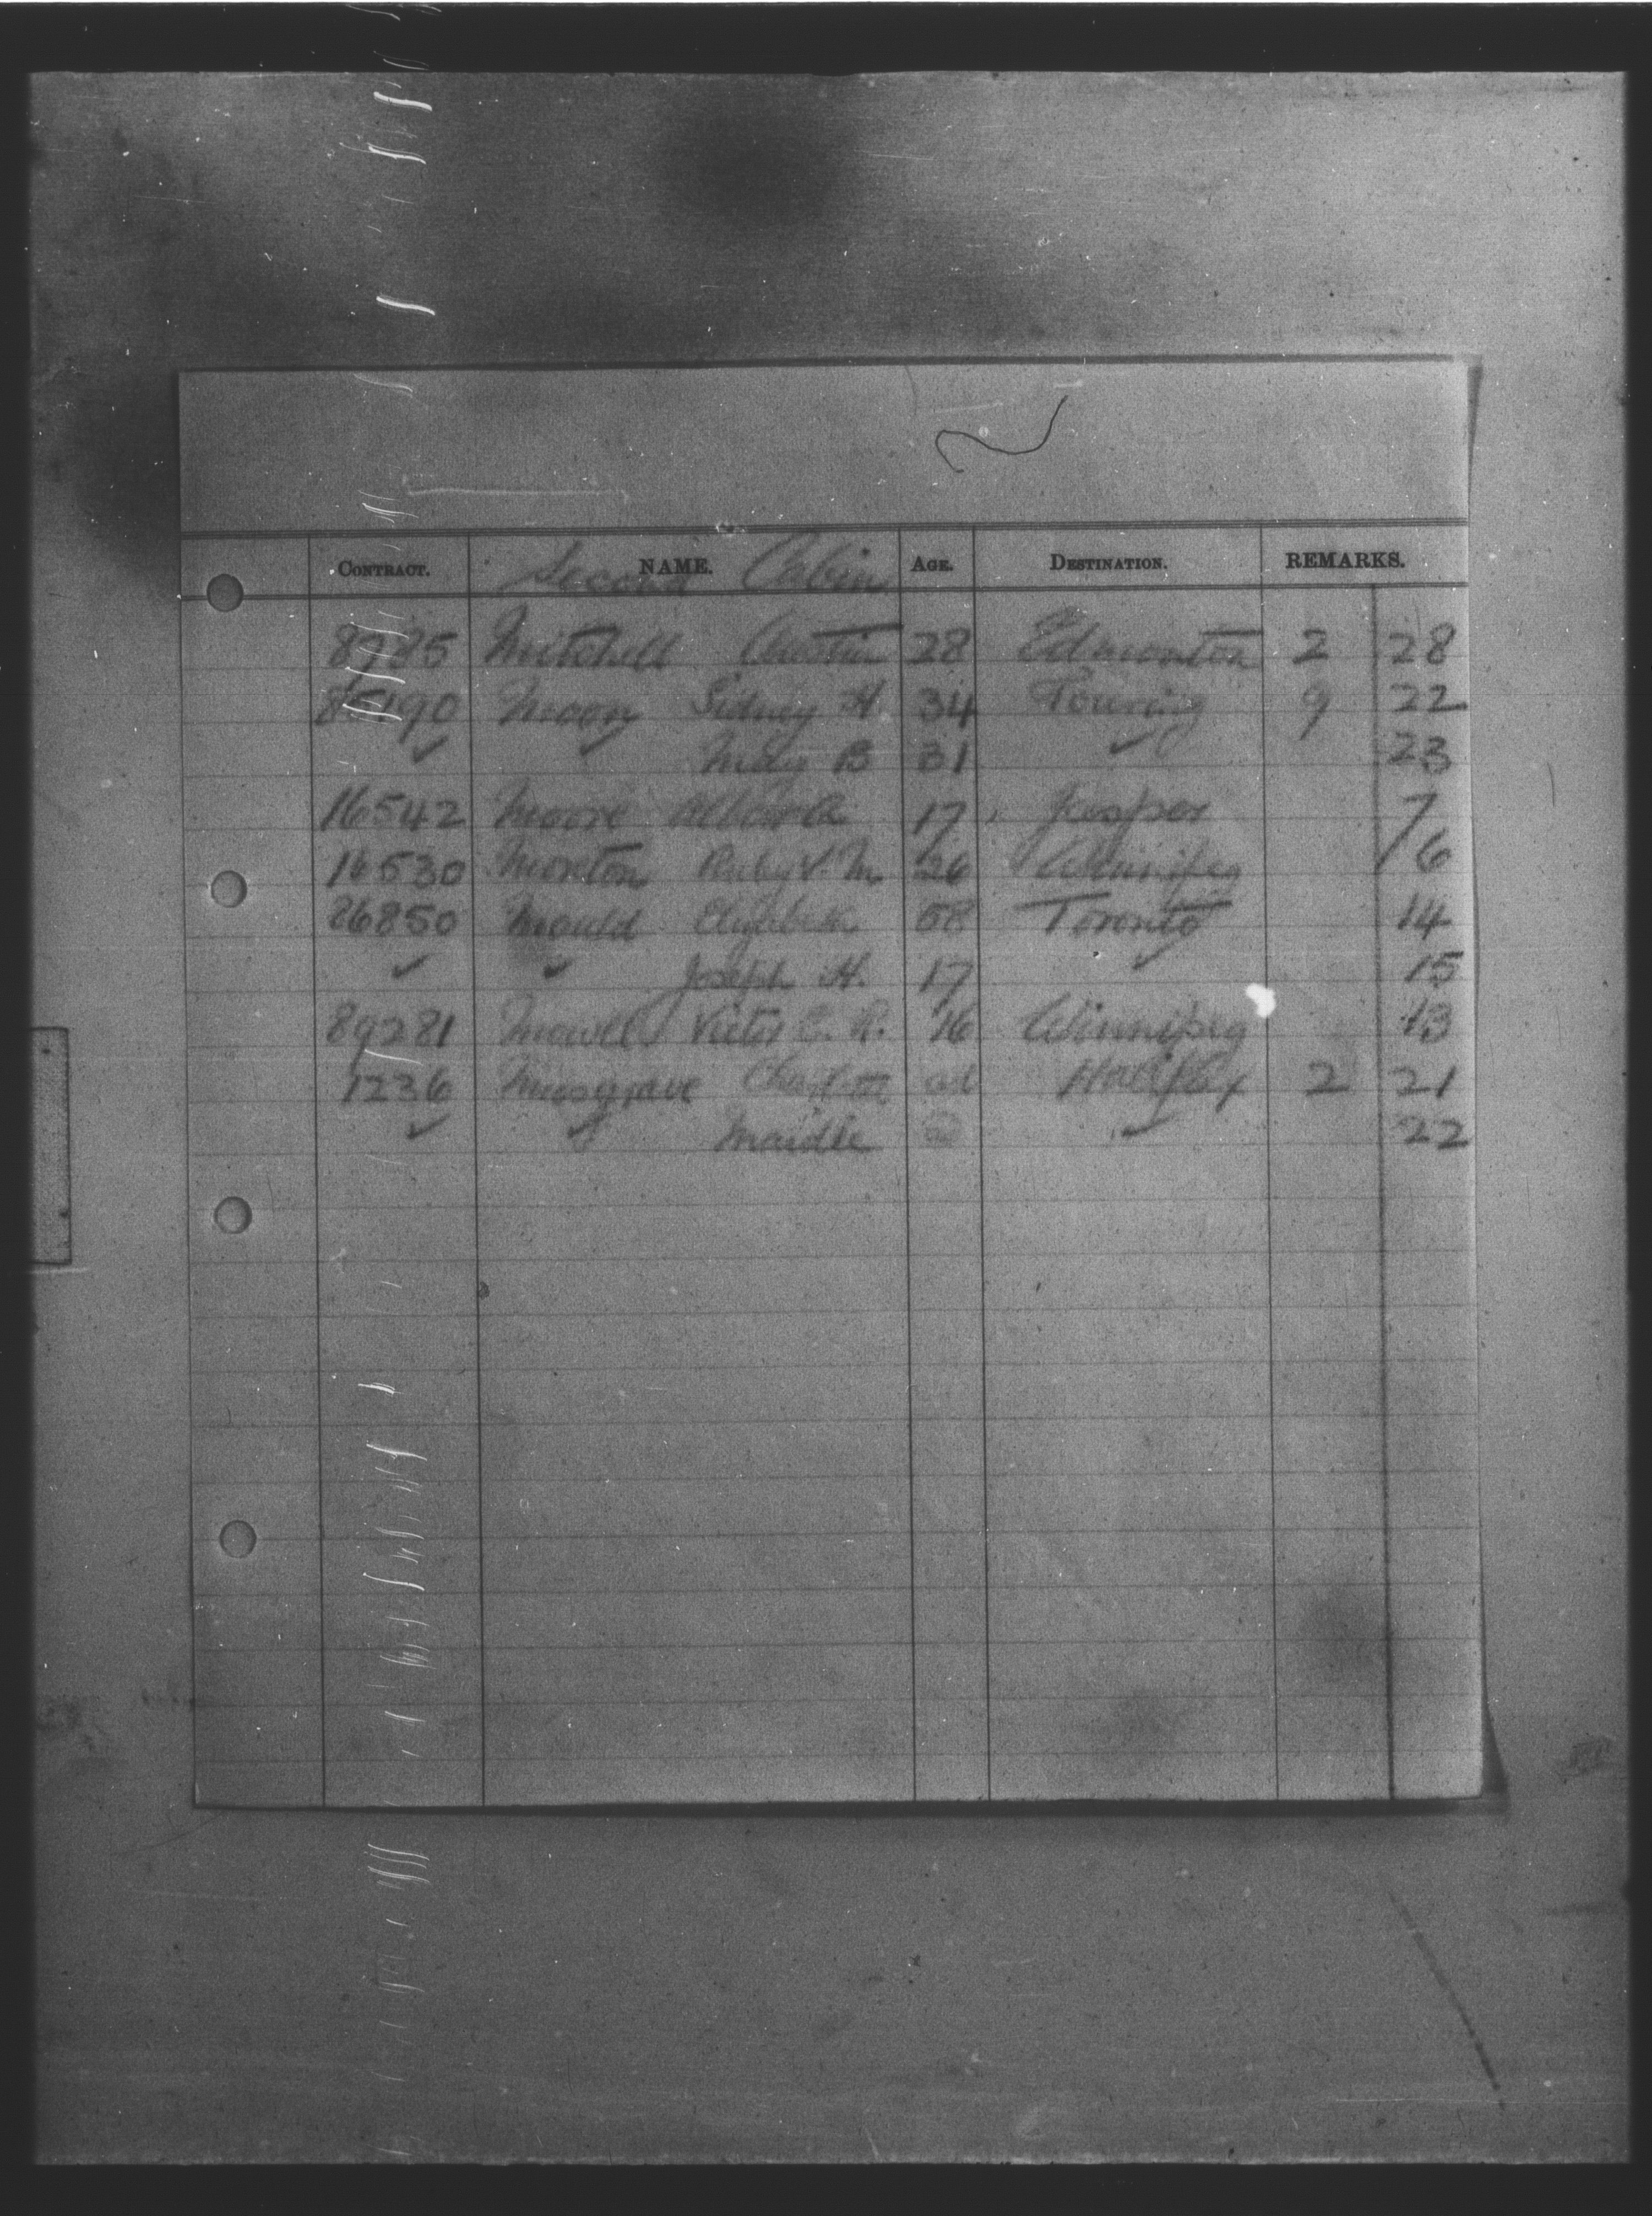 CONTRACT. NAME. AGE. DESTINATION. REMARKS.
Second Cabin
8785 Mitchell Austin 28 Edmonton 2 28
85190 Moon Sidney H. 34 Touring 9 22
✓ ✓ May B 31 ✓ 23
16542 Moore 17 Jasper 7
16530 Morton Ruby V. M. 26 Winnipeg 6
26850 Mould Elizabeth 58 Toronto 14
✓ ✓ Joseph H. 17 ✓ 15
89281 Victor E. R. 16 Winnipeg 13
1236 Musgrave Charlotte ad Halifax 2 21
✓ ✓ Maidie ad ✓ 22